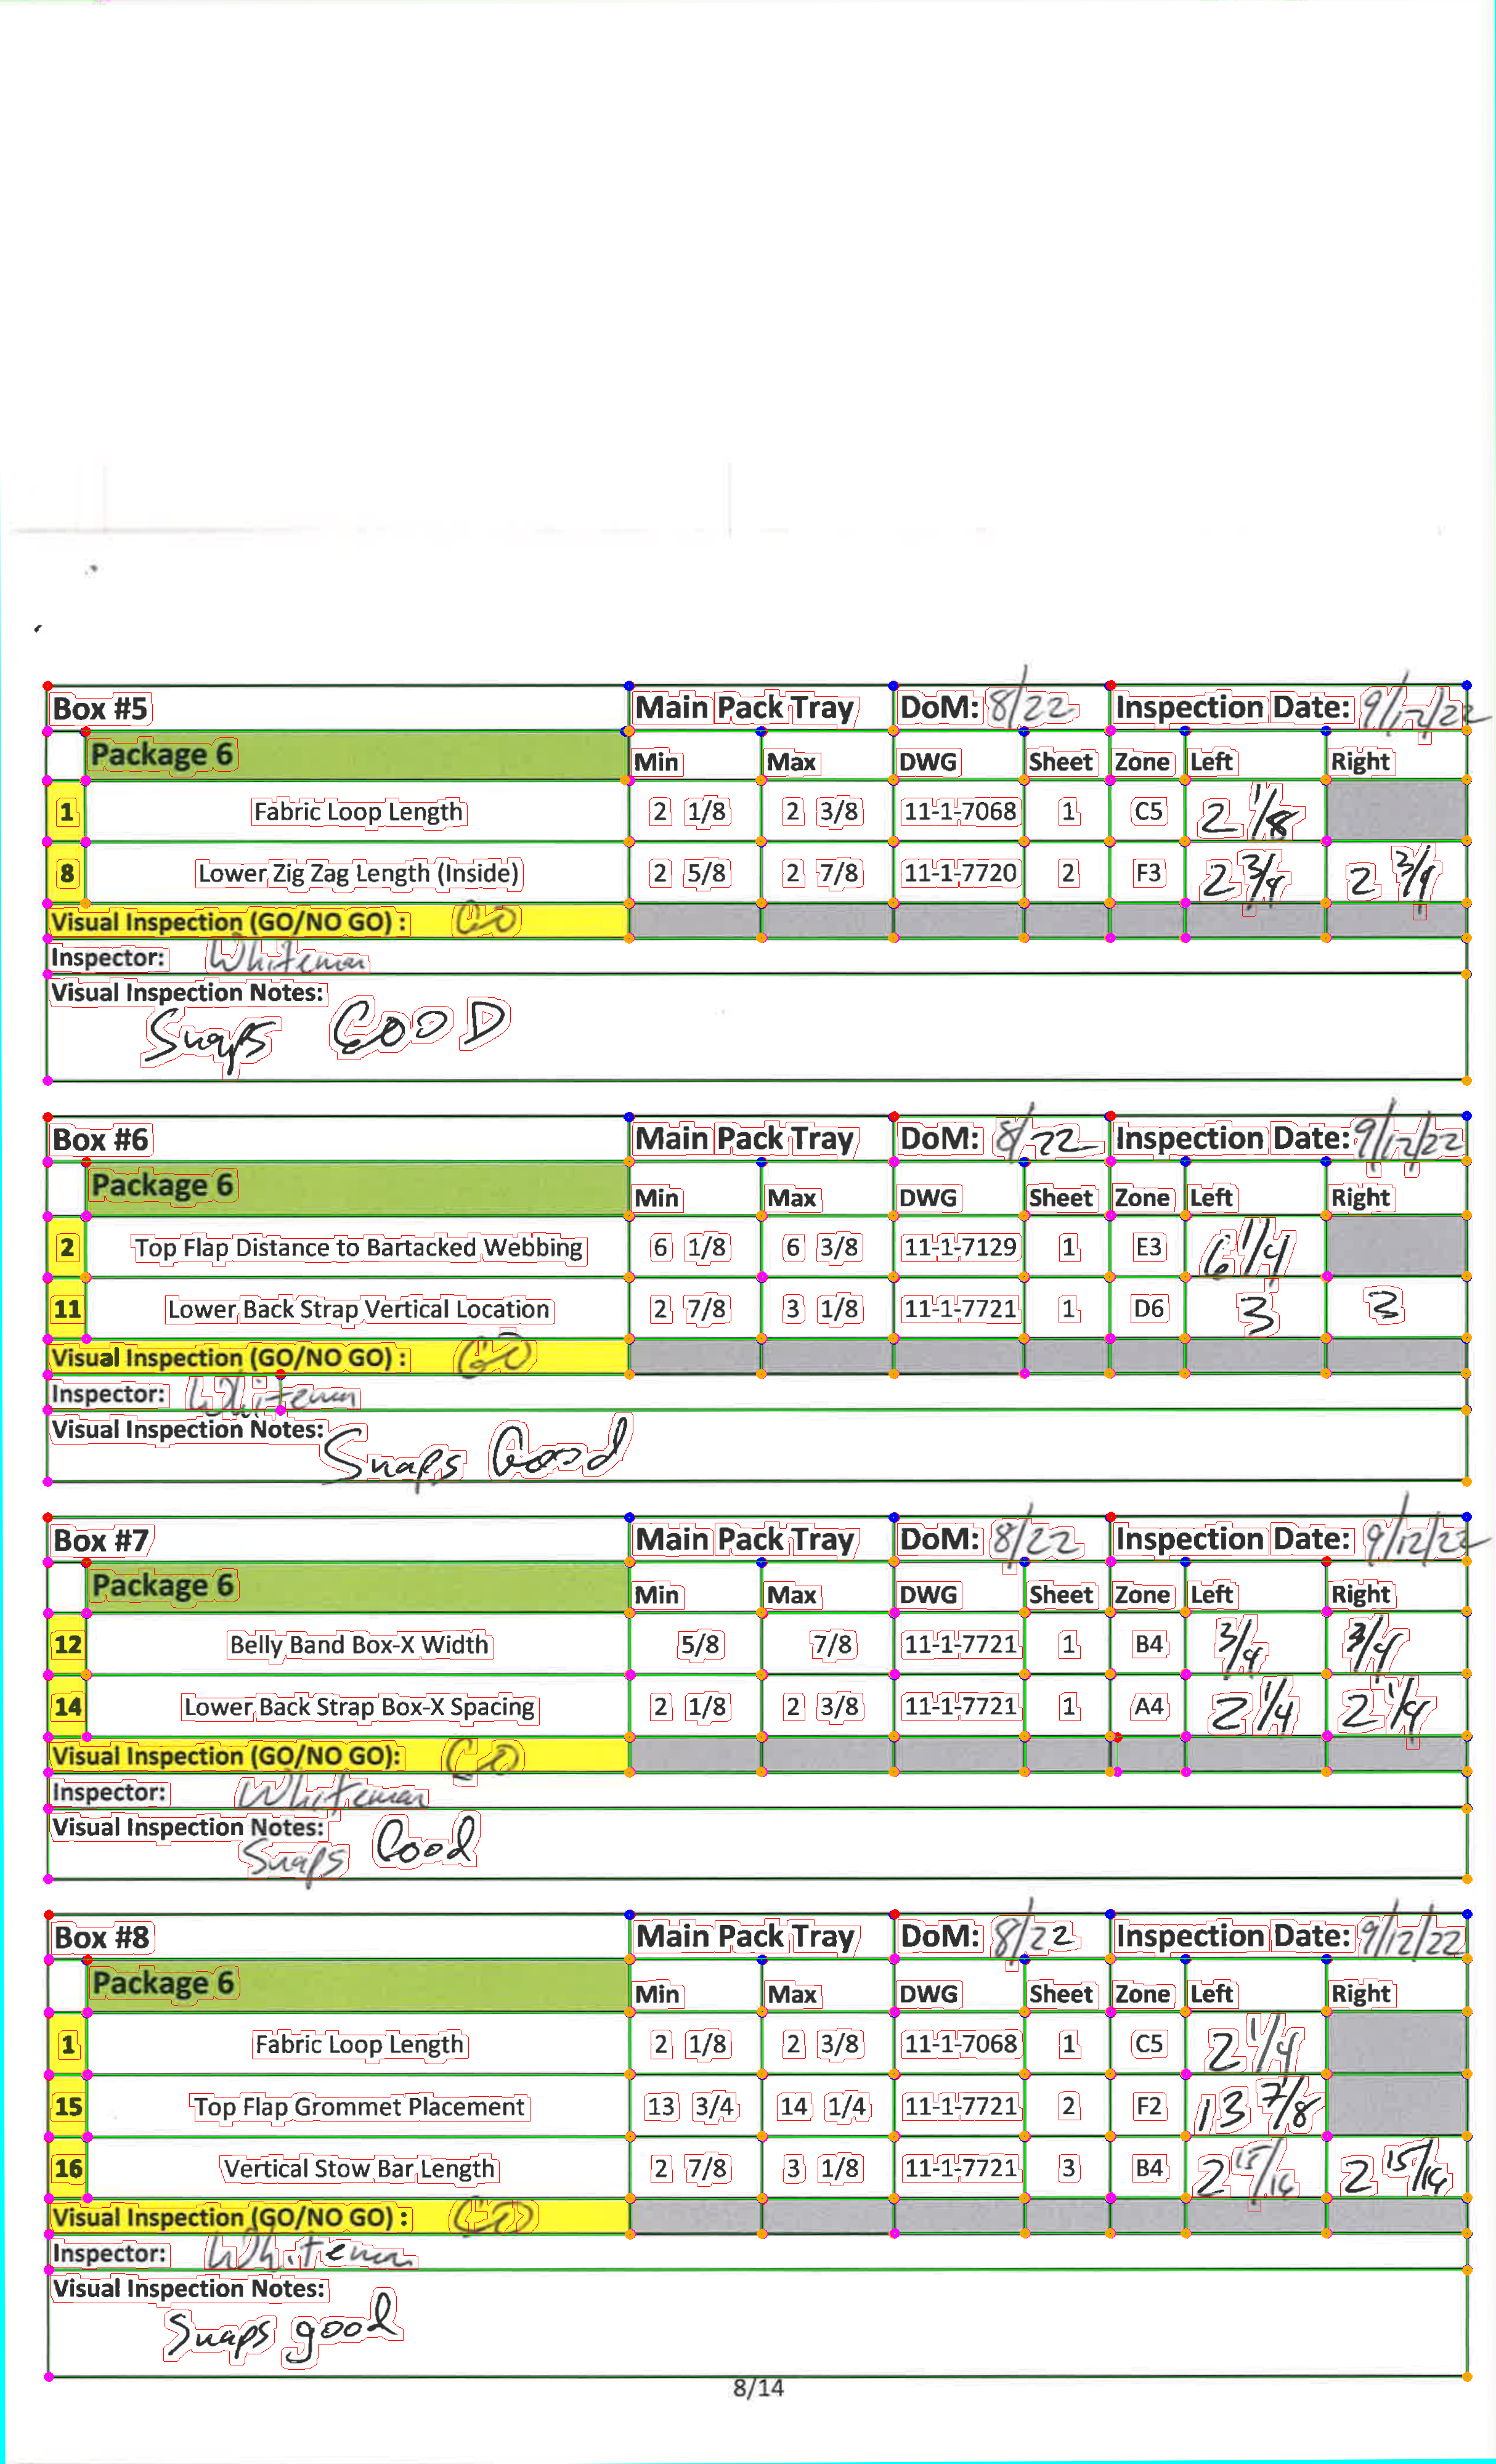 Box #5 Main Pack Tray DoM: 8/22 Inspection Date: 9/12/22
Package 6 Min Max DWG Sheet Zone Left Right
1 Fabric Loop Length 2 1/8 2 3/8 11-1-7068 1 C5 2 1/8
8 Lower Zig Zag Length (Inside) 2 5/8 2 7/8 11-1-7720 2 F3 2 3/4 2 3/4
Visual Inspection (GO/NO GO) : GO
Inspector: Whiteman
Visual Inspection Notes:
Snaps GOOD
Box #6 Main Pack Tray DoM: 8/22 Inspection Date: 9/12/22
Package 6 Min Max DWG Sheet Zone Left Right
2 Top Flap Distance to Bartacked Webbing 6 1/8 6 3/8 11-1-7129 1 E3 6 1/4
11 Lower Back Strap Vertical Location 2 7/8 3 1/8 11-1-7721 1 D6 3 3
Visual Inspection (GO/NO GO) : GO
Inspector: Whiteman
Visual Inspection Notes:
Snaps Good
Box #7 Main Pack Tray DoM: 8/22 Inspection Date: 9/12/22
Package 6 Min Max DWG Sheet Zone Left Right
12 Belly Band Box-X Width 5/8 7/8 11-1-7721 1 B4 3/4 3/4
14 Lower Back Strap Box-X Spacing 2 1/8 2 3/8 11-1-7721 1 A4 2 1/4 2 1/4
Visual Inspection (GO/NO GO): GO
Inspector: Whiteman
Visual Inspection Notes:
Snaps Good
Box #8 Main Pack Tray DoM: 8/22 Inspection Date: 9/12/22
Package 6 Min Max DWG Sheet Zone Left Right
1 Fabric Loop Length 2 1/8 2 3/8 11-1-7068 1 C5 2 1/4
15 Top Flap Grommet Placement 13 3/4 14 1/4 11-1-7721 2 F2 13 7/8
16 Vertical Stow Bar Length 2 7/8 3 1/8 11-1-7721 3 B4 2 15/16 2 15/16
Visual Inspection (GO/NO GO) : GO
Inspector: Whiteman
Visual Inspection Notes:
Snaps good
8/14